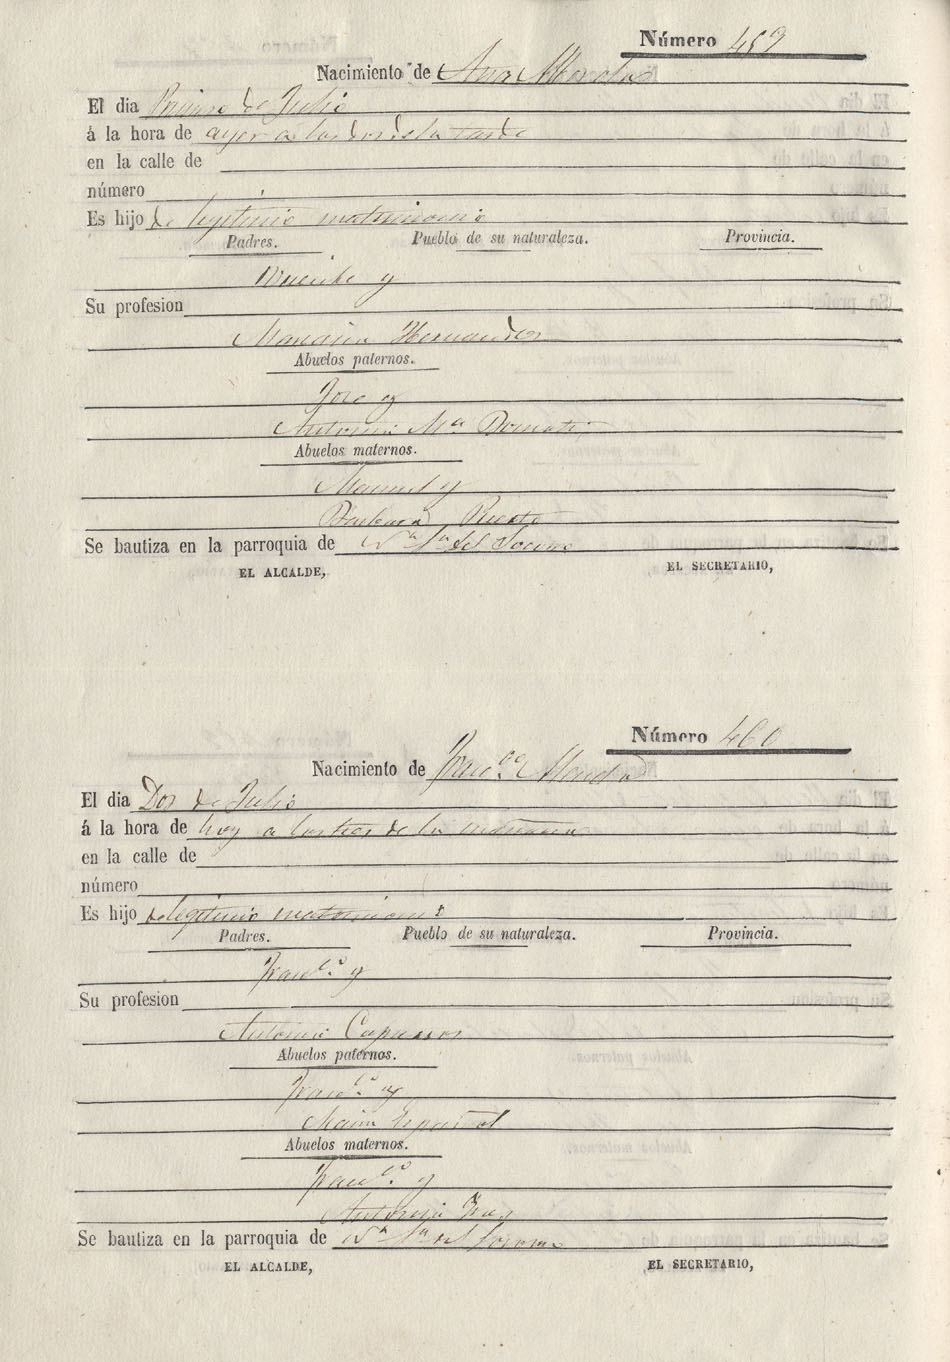 Número 459
Nacimiento de Ana Morales
El dia Primero de Julio
á la hora de ayer a las dos de la tarde
en la calle de
número
Es hijo de legitimo matrimonio
Padres. Pueblo de su naturaleza. Provincia.
Vicente y
Su profesion
Hernandez
Abuelos paternos.
Jose y
Antonia Mª
Abuelos maternos.
Manuel y
Barbara
Se bautiza en la parroquia de Nª Sª del Socorro
EL ALCALDE, EL SECRETARIO,
Número 460
Nacimiento de Franᶜᵒ
El dia Dos de Julio
á la hora de hoy a las tres de la mañana
en la calle de
número
Es hijo de legitimo matrimonio
Padres. Pueblo de su naturaleza. Provincia.
Franᶜᵒ y
Su profesion
Antonia Caparros
Abuelos paternos.
Franᶜᵒ y
Maria
Abuelos maternos.
Franᶜᵒ y
Antonia
Se bautiza en la parroquia de Nª Sª del Socorro
EL ALCALDE, EL SECRETARIO,